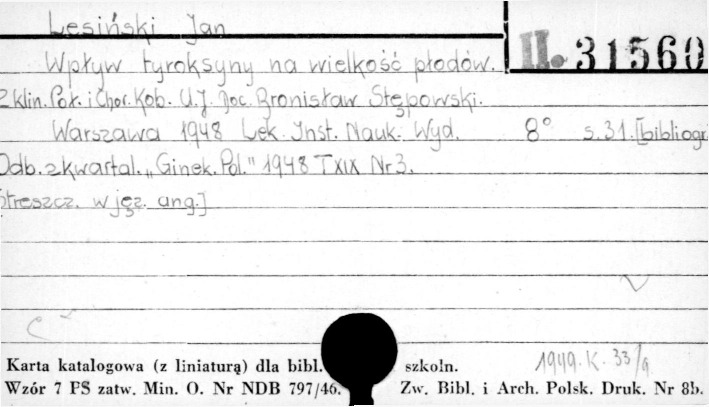 Lesiński Jan
II. 31560
Wpływ tyroksyny na wielkość płodów.
Z klin. Poł. i Chor. Kob. U. J. Doc. Bronisław Stępowski.
Warszawa 1948 Lek. Inst. Nauk. Wyd. 8° s. 31. [bibliogr
Odb. z kwartal. „Ginek. Pol." 1948 T XIX Nr 3.
Streszcz. w jęz. ang.]
1949. K. 33/9
Karta katalogowa (z liniaturą) dla bibl. szkoln.
Wzór 7 FS zatw. Min. O. Nr NDB 797/46. Zw. Bibl. i Arch. Polsk. Druk. Nr 8b.